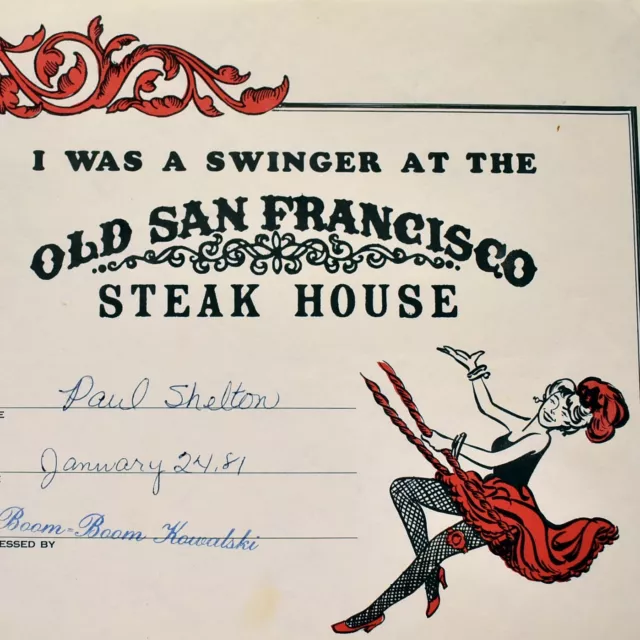 I WAS A SWINGER AT THE
OLD SAN FRANCISCO
STEAK HOUSE
Paul Shelton
E
January 24, 81
Boom-Boom Kowalski
ESSED BY